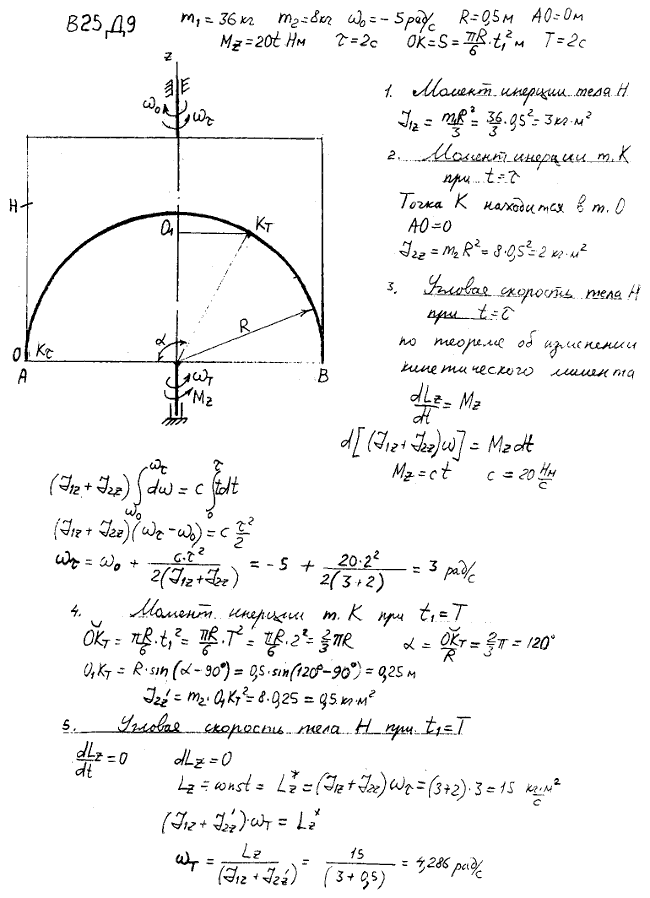 В25 Д9
m₁ = 36 кг m₂ = 8 кг ω₀ = – 5 рад/с R = 0,5 м AO = 0 м
Mz = 20t Нм τ = 2 с OK = S = πR/6 · t₁² м T = 2 с
z
E
ω₀ ωτ
H
O₁ Kт
α R
O Kτ
A B
ωт
Mz
1. Момент инерции тела H
J₁z = m₁R²/3 = 36/3 · 0,5² = 3 кг·м²
2. Момент инерции т. K
при t = τ
Точка K находится в т. O
AO = 0
J₂z = m₂R² = 8·0,5² = 2 кг·м²
3. Угловая скорость тела H
при t = τ
по теореме об изменении
кинетического момента
dLz/dt = Mz
d[(J₁z + J₂z)ω] = Mz dt
Mz = ct c = 20 Нм/с
(J₁z + J₂z) ∫ω₀^ωτ dω = c ∫₀^τ t dt
(J₁z + J₂z)(ωτ – ω₀) = c τ²/2
ωτ = ω₀ + c·τ²/2(J₁z + J₂z) = – 5 + 20·2²/2(3+2) = 3 рад/с
4. Момент инерции т. K при t₁ = T
OKт = πR/6 · t₁² = πR/6 · T² = πR/6 · 2² = 2/3 πR α = OKт/R = 2/3 π = 120°
O₁Kт = R·sin(α – 90°) = 0,5·sin(120° – 90°) = 0,25 м
J₂z′ = m₂·O₁Kт² = 8·0,25 = 0,5 кг·м²
5. Угловая скорость тела H при t₁ = T
dLz/dt = 0 dLz = 0
Lz = const = Lz* = (J₁z + J₂z)ωτ = (3+2)·3 = 15 кг·м²/с
(J₁z + J₂z′)·ωт = Lz*
ωт = Lz/(J₁z + J₂z′) = 15/(3 + 0,5) = 4,286 рад/с